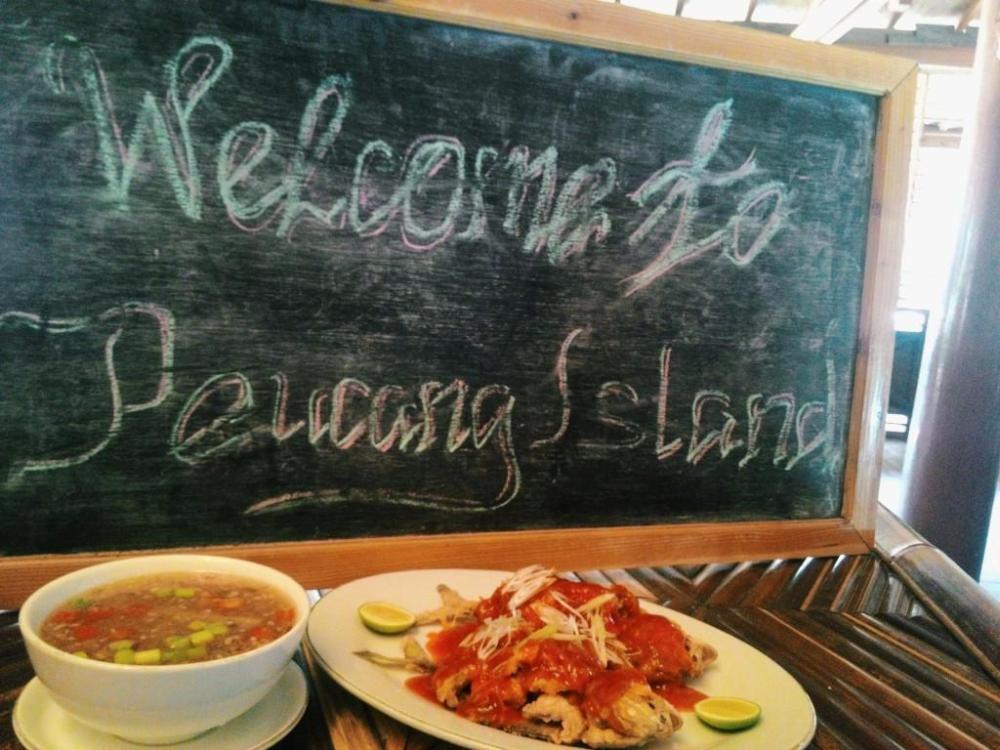 Welcome to
Peucang Island